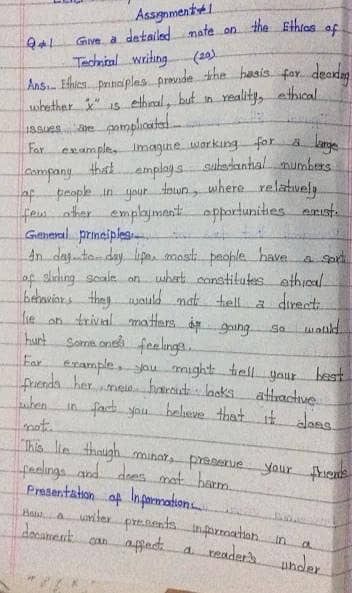 Assignment #1
Q#1 Give a detailed note on the Ethics of
Technical writing (20)
Ans... Ethics principles provide the basis for deciding
whether "x" is ethical, but in reality, ethical
issues are complicated
For example, imagine working for a large
company that employs substantial numbers
of people in your town, where relatively
few other employment opportunities exist.
General principles:
In day-to-day life, most people have a sort
of sliding scale on what constitutes ethical
behaviors they would not tell a direct
lie on trivial matters if going so would
hurt someone's feelings.
For example, you might tell your best
friends her new haircut looks attractive
when in fact you believe that it does
not.
This lie though minor, preserve your friends
feelings and does not harm
Presentation of Information:
How a writer presents information in a
document can affect a reader's under